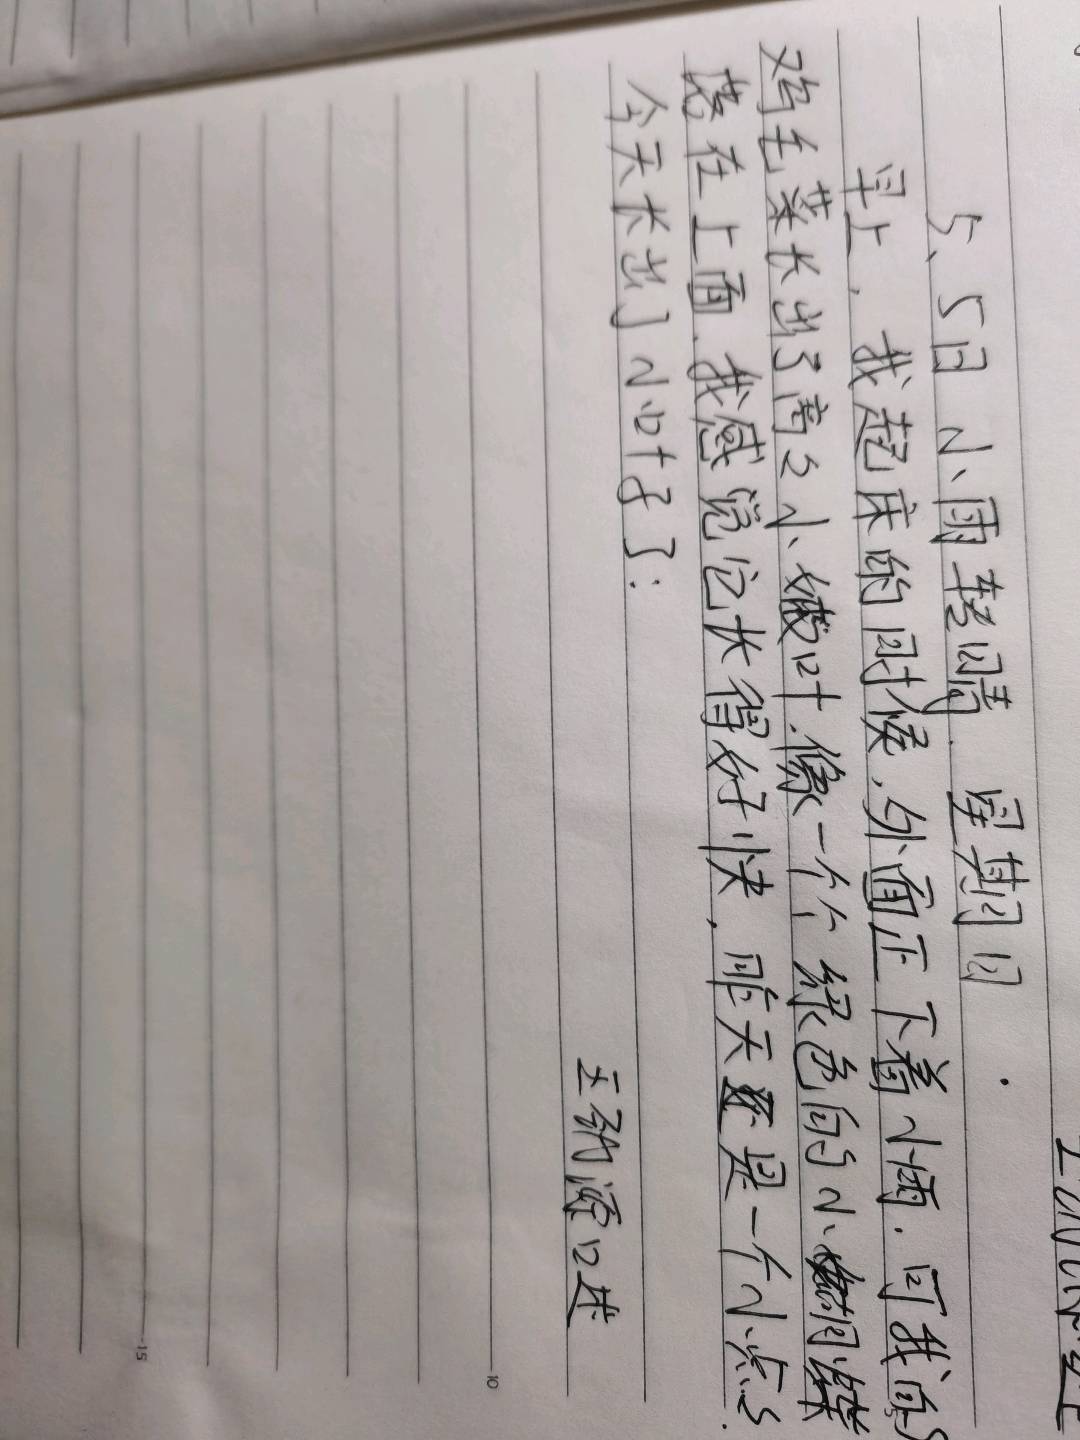 5、5日 小雨转晴. 星期日
早上, 我起床的时候, 外面正下着小雨. 可我的
鸡毛菜长出了两么小嫩叶. 像一个个绿色的小蝴蝶
落在上面. 我感觉它长得好快, 昨天还是一个小点点.
今天长出了小叶子了:
口述